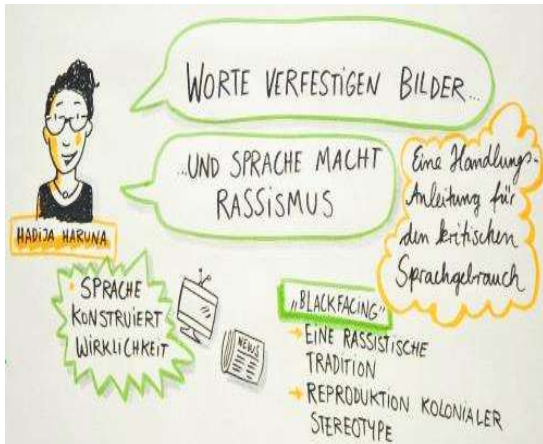 WORTE VERFESTIGEN BILDER...
...UND SPRACHE MACHT
RASSISMUS
HADIJA HARUNA
Eine Handlungs-
Anleitung für
den kritischen
Sprachgebrauch
SPRACHE
KONSTRUIERT
WIRKLICHKEIT
NEWS
„BLACKFACING"
→ EINE RASSISTISCHE
TRADITION
→ REPRODUKTION KOLONIALER
STEREOTYPE